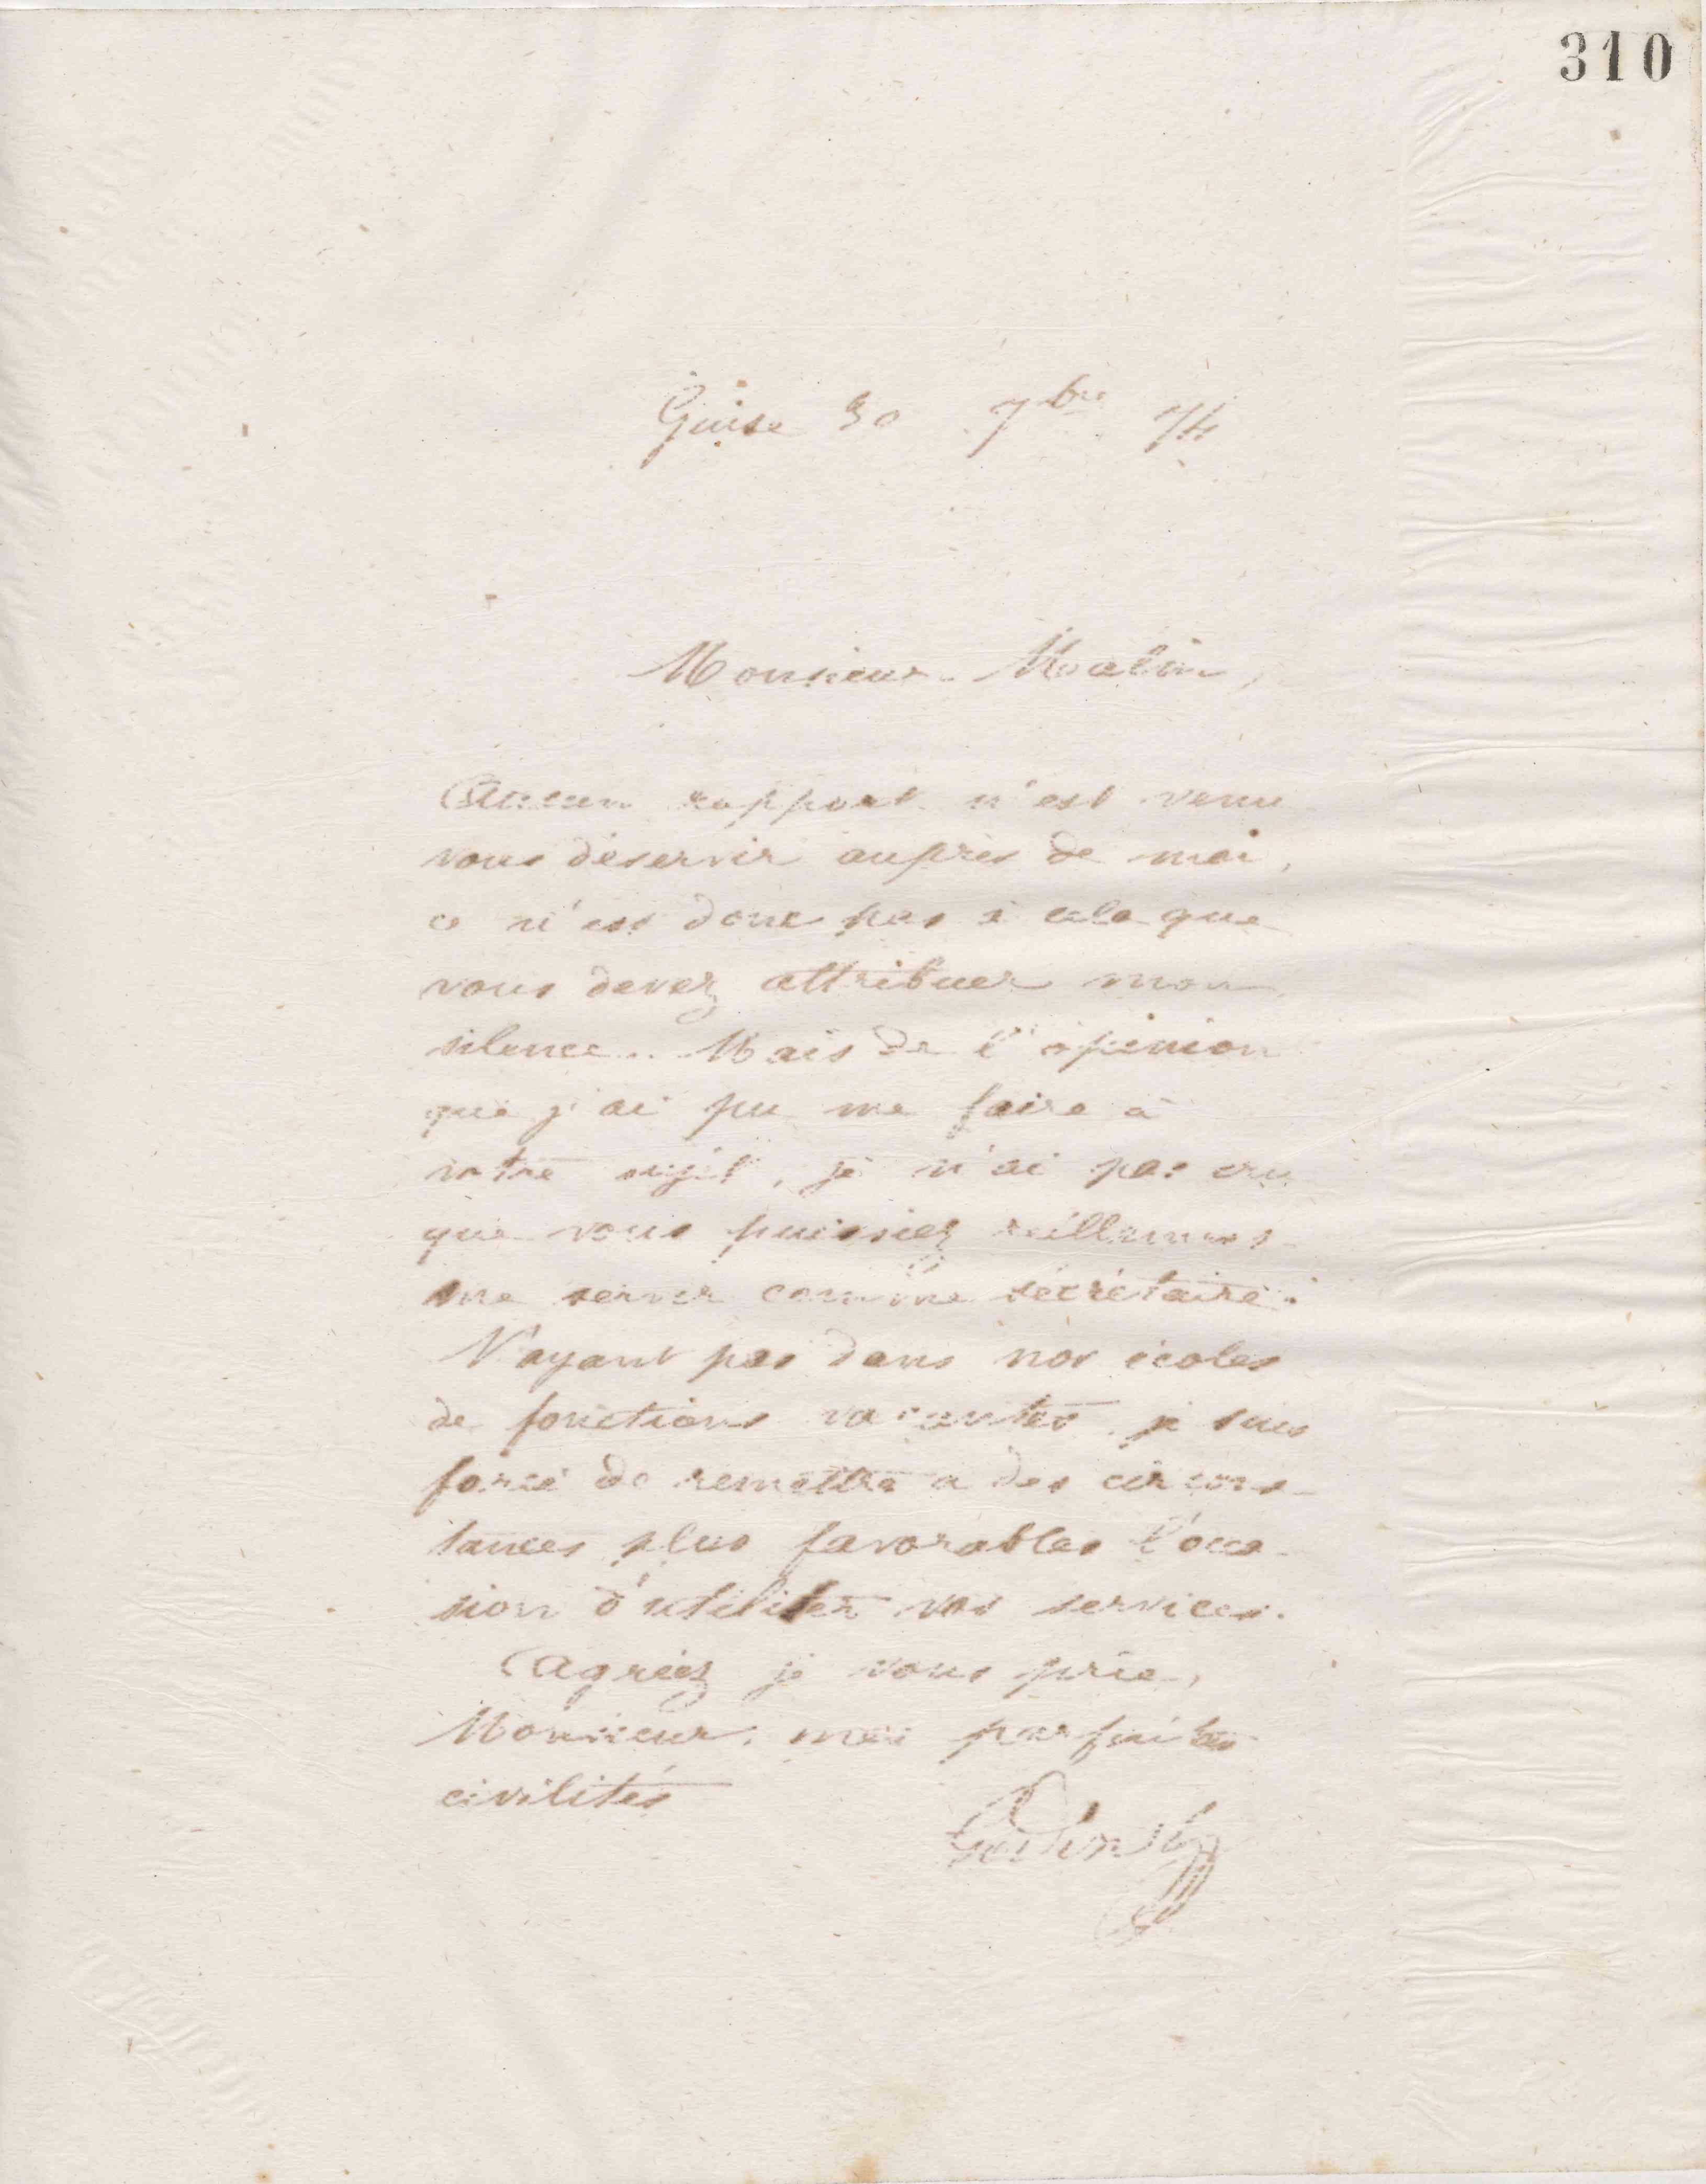 310
Guise 30 7bre 74
Monsieur Moalin,
Aucun rapport n'est venu
vous déservir auprès de moi,
ce n'est donc pas à cela que
vous devez attribuer mon
silence. Mais de l'opinion
que j'ai pu me faire à
votre sujet, je n'ai pas cru
que vous puissiez
me servir comme secrétaire.
N'ayant pas dans nos écoles
de fonctions vacantes je suis
forcé de remettre à des circons-
tances plus favorables l'occa-
sion d'utiliser vos services.
Agréez je vous prie,
Monsieur, mes parfaites
civilités
Godin